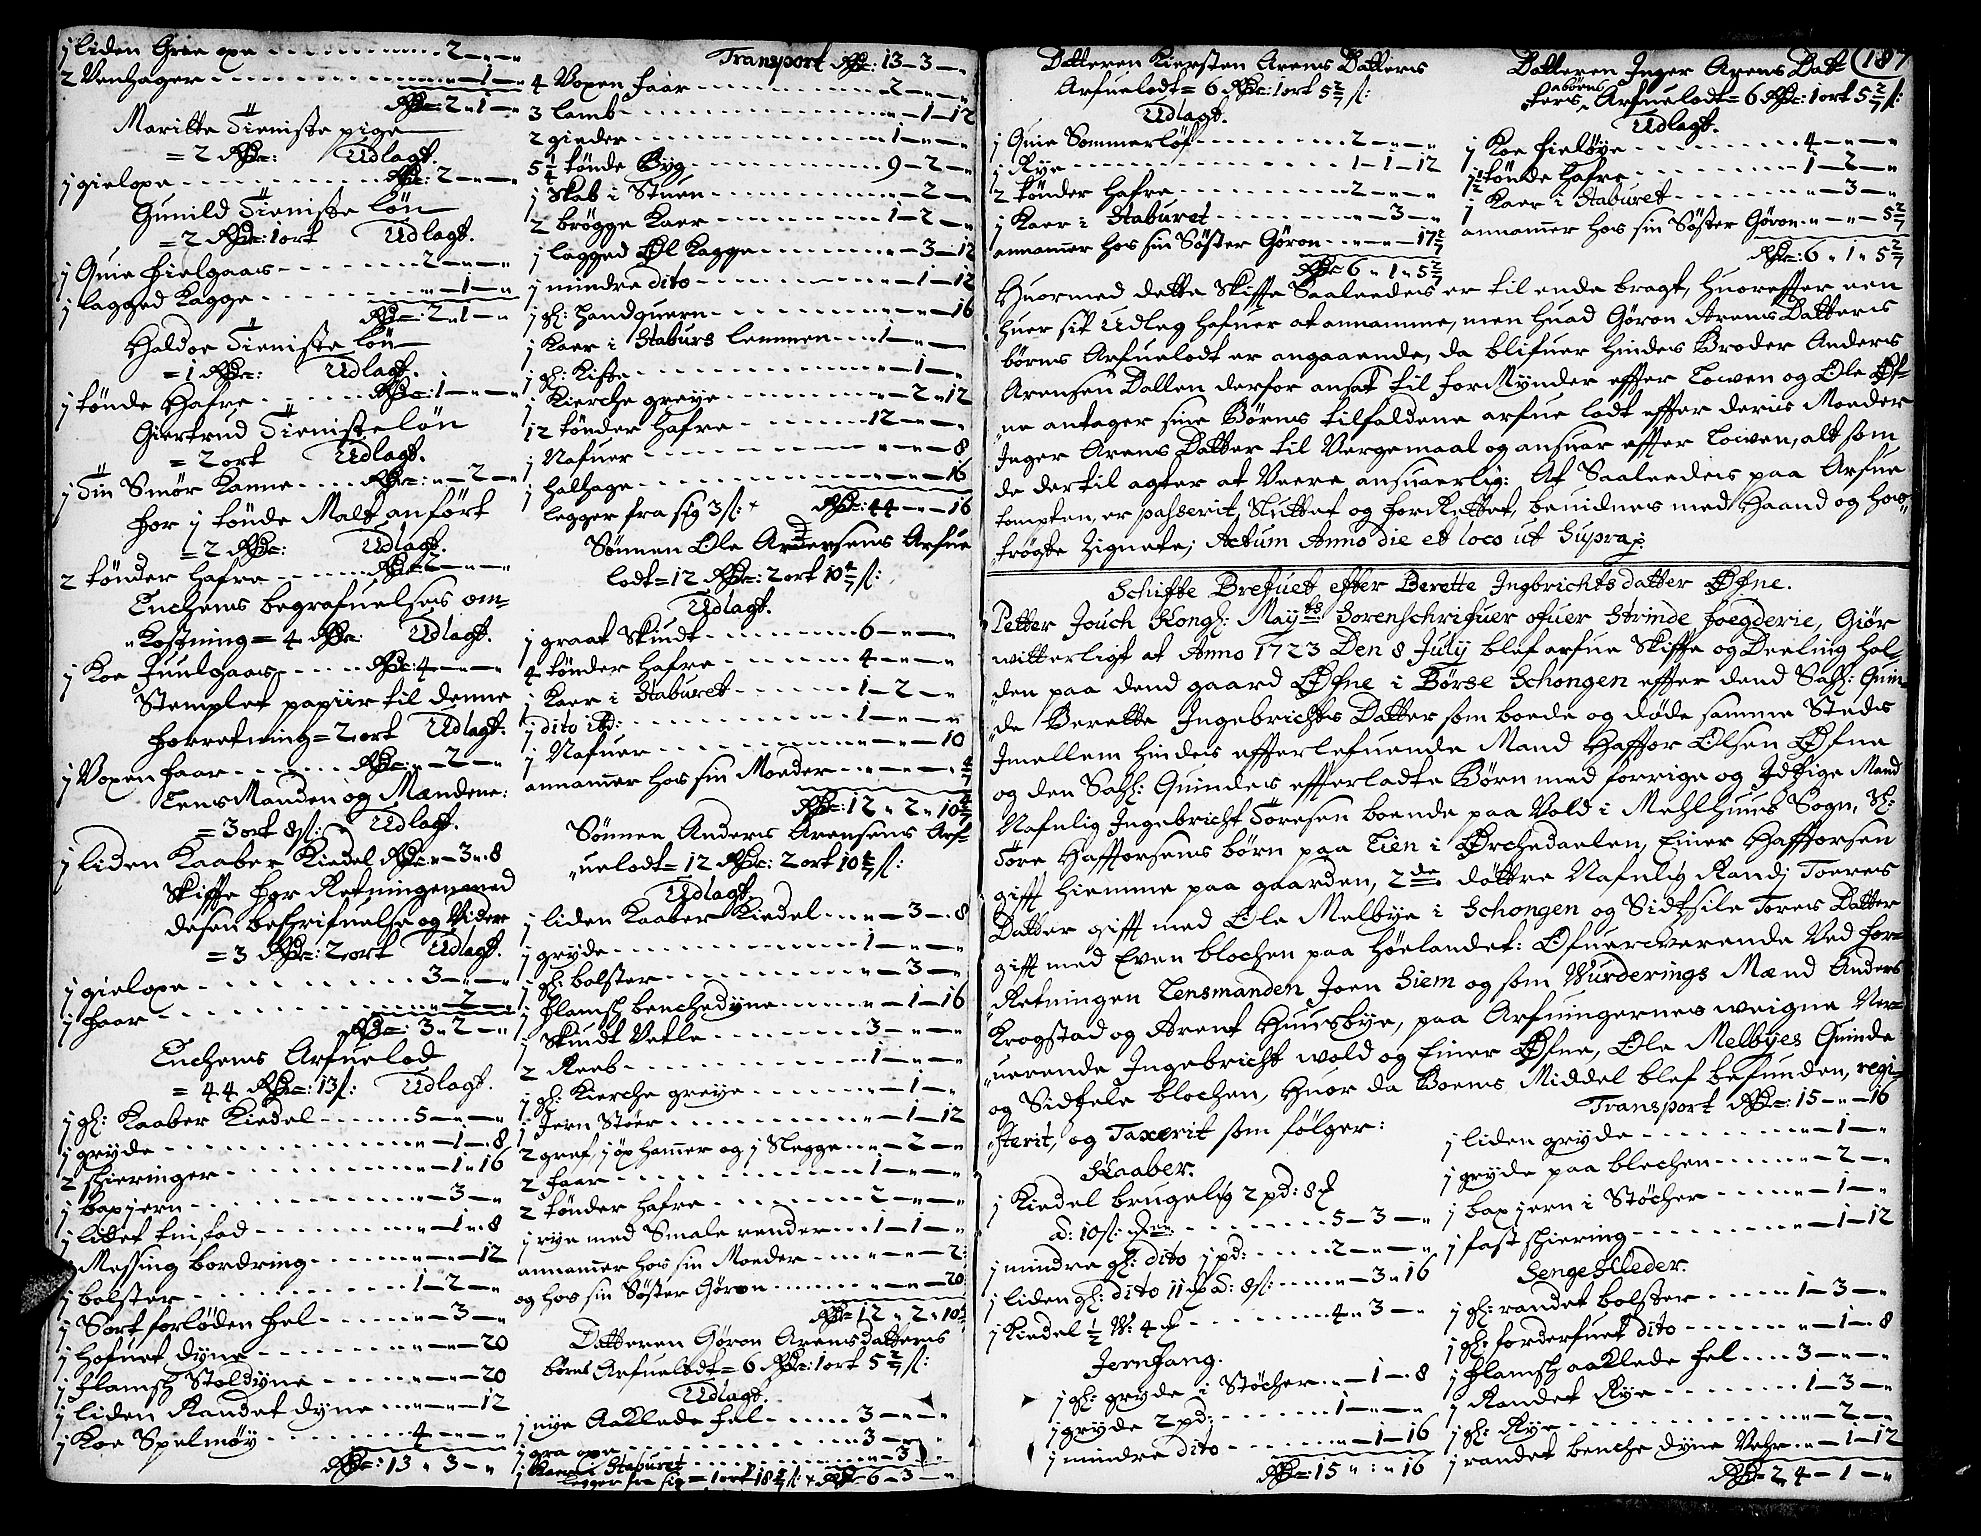 j liden Graa oxe 2 — „ — „
2 Venhager „ — 1 — „
Rdr: 2 „ 1 — „
Maritte Tieniste pige
= 2 Rdr: Udlagt.
j gieloxe Rdr: 2 — „ — „
Gunild Tieniste løn
= 2 Rdr: 1 ort Udlagt.
j Quie Fielgaas 2 — „ — „
j lagged Kagge „ — 1 — „
Rdr: 2 „ 1 — „
Haldoe Tieniste løn
= 1 Rdr: Udlagt.
j tønde Hafre Rdr: 1 — „ — „
Giertrud Tieniste løn
= 2 ort Udlagt.
j Tin Smør Kanne Rdr: „ — 2 — „
For j tønde Malt anført
= 2 Rdr: Udlagt.
2 tønder Hafre Rdr: 2 — „ — „
Enchens begrafuelses om-
Kostning = 4 Rdr: Udlagt.
j Koe Juulgaas Rdr: 4 — „ — „
Stemplet papiir til denne
forretning = 2 ort Udlagt.
j Voxen faar Rdr: „ — 2 — „
Lens Manden og Mændene:
= 3 ort 8 s: Udlagt.
j liden Kaaber Kiedel Rdr: „ — 3 „ 8
Skiffte for Retningen med
desen beskrifuelse og Videre
= 3 Rdr: 2 ort Udlagt.
j gieloxe 3 — „ — „
j faar „ — 2 — „
Rdr: 3 „ 2 — „
Enchens Arfuelod
= 44 Rdr: 13 s: Udlagt.
j gl: Kaaber Kiedel 5 — „ — „
j gryde „ — 1 „ 8
2 schieringer „ — 1 „ 16
j baxjern „ — 3 — „
j lidet knifad „ — 1 „ 8
j Messing bordring „ — „ — 12
j bolster 1 — 2 — „
j Sort forløden fel „ — 3 — „
j hofuet dyne „ — „ — 20
j flamsch Stoldyne „ — „ — 20
j liden Randet dyne „ — „ — 12
j Koe Spelmøy 4 — „ — „
Rdr: 13 „ 3 — „
Transport Rdr: 13 — 3 — „
4 Voxen faar 2 — „ — „
3 lamb „ — 1 — 12
2 gieder 1 — „ — „
5 1/4 tønde Byg 9 — 2 — „
j Skab i Stuen „ — 2 — „
2 brøgge Kaer 1 — 2 — „
j lagged Øl Kagge „ — 3 — 12
j mindre dito „ — 1 — 12
j gl: Handquern „ — „ — 16
j Kaer i Staburs lemmen 1 — „ —
j gl: Kiste „ — 1 — „
j Kierche greye „ — 2 „ 12
12 tønder Hafre 12 — „ — „
j Nafuer „ — „ — 8
j halhage „ — „ — 16
legger fra sig 3 s: Rdr: 44 — „ — 16
Sønnen Ole Arensens Arfue
lodt = 12 Rdr: 2 ort 10 4/7 s:
Udlagt.
j graat Skindt 6 — „ — „
4 tønder Hafre 4 — „ — „
j Kaer i Staburet 1 — 2 — „
j dito ibd: 1 — „ — „
j Nafuer „ — „ — 10
annammer hos sin Moeder „ — „ — 4/7
Rdr: 12 „ 2 „ 10 4/7
Sønnen Anders Arensens Arf-
uelodt = 12 Rdr: 2 ort 10 4/7 s:
Udlagt.
j liden Kaaber Kiedel „ — 3 — 8
j gryde 1 — „ — „
j gl: bolster „ — 3 — „
j flamsch benchedyne „ — 1 — 16
j Skindt Vetle 3 — „ — „
2 Reeb 1 — „ — „
j gl: Kierche greye „ — 1 — „
j Jern Støer „ — 1 — 12
2 gref, j øxhammer og j Slegge „ — 2 — „
2 faar 1 — „ — „
2 tønder Hafre 2 — „ — „
j rye med Smale render 1 — 1 — „
annammer hos sin Moeder „ — „ — 2
og hos sin Søster Gøron „ — „ — 20
Rdr: 12 „ 2 „ 10 4/7
Datteren Gøron Arensdatters
børns Arfuelodt = 6 Rdr: 1 ort 5 2/7 s:
Udlagt.
j nye Aaklede fel 3 — „ — „
j graa oxe 3 — „ — „
j Kaer i Staburet „ — 3 — „
legger fra sig = 1 ort 18 5/7 s: Rdr: 6 — 3 — „
187
Datteren Kiersten Arens Datters
Arfuelodt = 6 Rdr: 1 ort 5 2/7 s:
Udlagt.
j Quie Sommerløf 2 — „ — „
j Rye 1 — 1 — 12
2 tønder Hafre 2 — „ — „
j Kaer i Staburet „ — 3 — „
annammer hos sin Søster Gøron „ — „ — 17 2/7
Rdr: 6 „ 1 „ 5 2/7
Datteren Inger Arens Dat-
ters børns Arfuelodt = 6 Rdr: 1 ort 5 2/7 s:
Udlagt.
j Koe fieløye 4 — „ — „
1 1/2 tønde Hafre 1 — 2 — „
j Kaer i Staburet „ — 3 — „
annammer hos sin Søster Gøron „ — „ — 5 2/7
Rdr: 6 „ 1 „ 5 2/7
Huormed dette Skiffte Saaleedes er til ende bragt, huoreffter een
huer sit Udleg hafuer at annamme, men huad Gøron Arens Datters
børns Arfuelodt er angaaende, da blifuer hindes Broder Anders
Arensen Dallen derfor ansat til forMynder effter Lowen og Ole Øf-
ne antager sine Børns tilfaldene arfue lodt effter deris Moeder
Inger Arens Datter til Vergemaal og ansuar effter Lowen, alt som
de dertil agter at Veere ansuarlig: At Saaleedes paa Arfue
tompten er passerit, Sluttet og forRettet, beuidnes med Haand og hos
trøgte Zignete; Actum Anno die et loco ut Supra j:
Schifte Brefuet efter Berette Ingbrichts datter Øfne.
Petter Jouch Kongl: Mayts Sorenschrifuer ofuer Strinde foegderie, Giør
witterligt at Anno 1723 Den 8 July blef arfue Skiffte og Deeling hol-
den paa dend gaard Øfne i Børse Schongen effter dend Sahl: Quin
de Berette Ingebrichts Datter som boede og døde samme Steds
Imellem hindes effterlefuende Mand Haffor Olsen Øfne
og den Sahl: Quindes effterladte Børn med forrige og Idtzige Mand
Nafnlig Ingebricht Toresen boende paa Vold i Mehlhuus Sogn, Sl:
Tore Hafforsens børn paa Lien i Ørchedaelen, Einer Hafforsen
gifft hiemme paa gaarden, 2de døttre Nafnlig Randj Toeres
Datter gifft med Ole Melbye i Schongen og Sidtzile Tores Datter
gifft med Even Blochen paa Høelandet: Ofuerverende Ved for-
Retningen Lensmanden Joen Siem og som Wurderings Mænd Anders
Krogstad og Arent Huusbye, paa Arfuingernes weigne Ner-
uerende Ingebricht wold og Einer Øfne, Ole Melbyes Quinde
og Sidtzele blochen, Huor da Boens Middel blef befunden, regi-
sterit, og Taxerit som følger:
Kaaber.
j Kiedel brugelig 2 pd: 8 lb
a: 10 s: 5 — 3 — „
j mindre gl: dito j pd: 2 — „ — „
j liden gl: dito 11 lb a: 8 s: „ — 3 „ 16
j Kiedel 1/2 W: 4 lb 4 „ 3 — „
Jernfang.
j gl: gryde i Støcher „ — 1 — 8
j gryde 2 pd: 1 — „ — „
j mindre dito „ — 1 — 16
Rdr: 15 „ : „ 16
Transport Rdr: 15 — „ — 16
j liden gryde „ — 1 — „
j gryde paa blechen „ — 2 — „
j baxjern i Støcher „ — 1 — „
j fast schiering „ — 1 — 12
Senge Kleder.
j gl: randet bolster 1 — 3 — „
j gl: forderfuet dito „ — 1 — 8
j flamsch aaklede fel 3 — „ — „
j Randet Rye 1 — 3 — „
j gl: Rye „ — 2 — „
j randet benche dyne Vehr „ — 1 — 12
Rdr: 24 — 1 — „